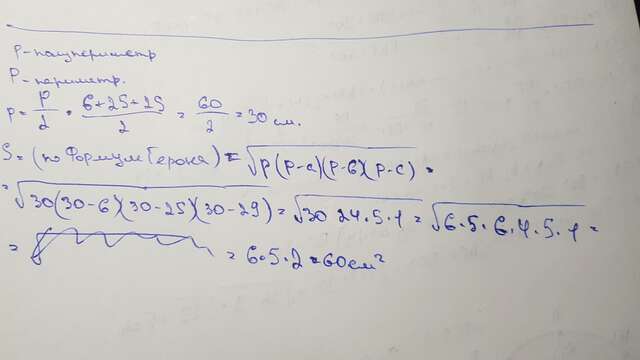 p - полупериметр
P - периметр.
p = P/2 = (6+25+29)/2 = 60/2 = 30 см.
S = (по Формул Герона) = √p(p-a)(p-b)(p-c) =
= √30(30-6)(30-25)(30-29) = √30·24·5·1 = √6·5·6·4·5·1 =
= = 6·5·2 = 60 см²